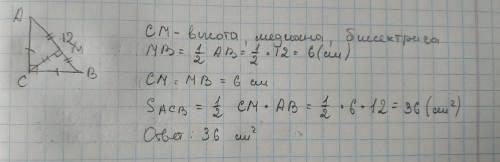 A
12
M
C
B
CM - высота, медиана, биссектриса
MB = 1/2 AB = 1/2 · 12 = 6 (см)
CM = MB = 6 см
SACB = 1/2 CM · AB = 1/2 · 6 · 12 = 36 (см²)
Ответ: 36 см²